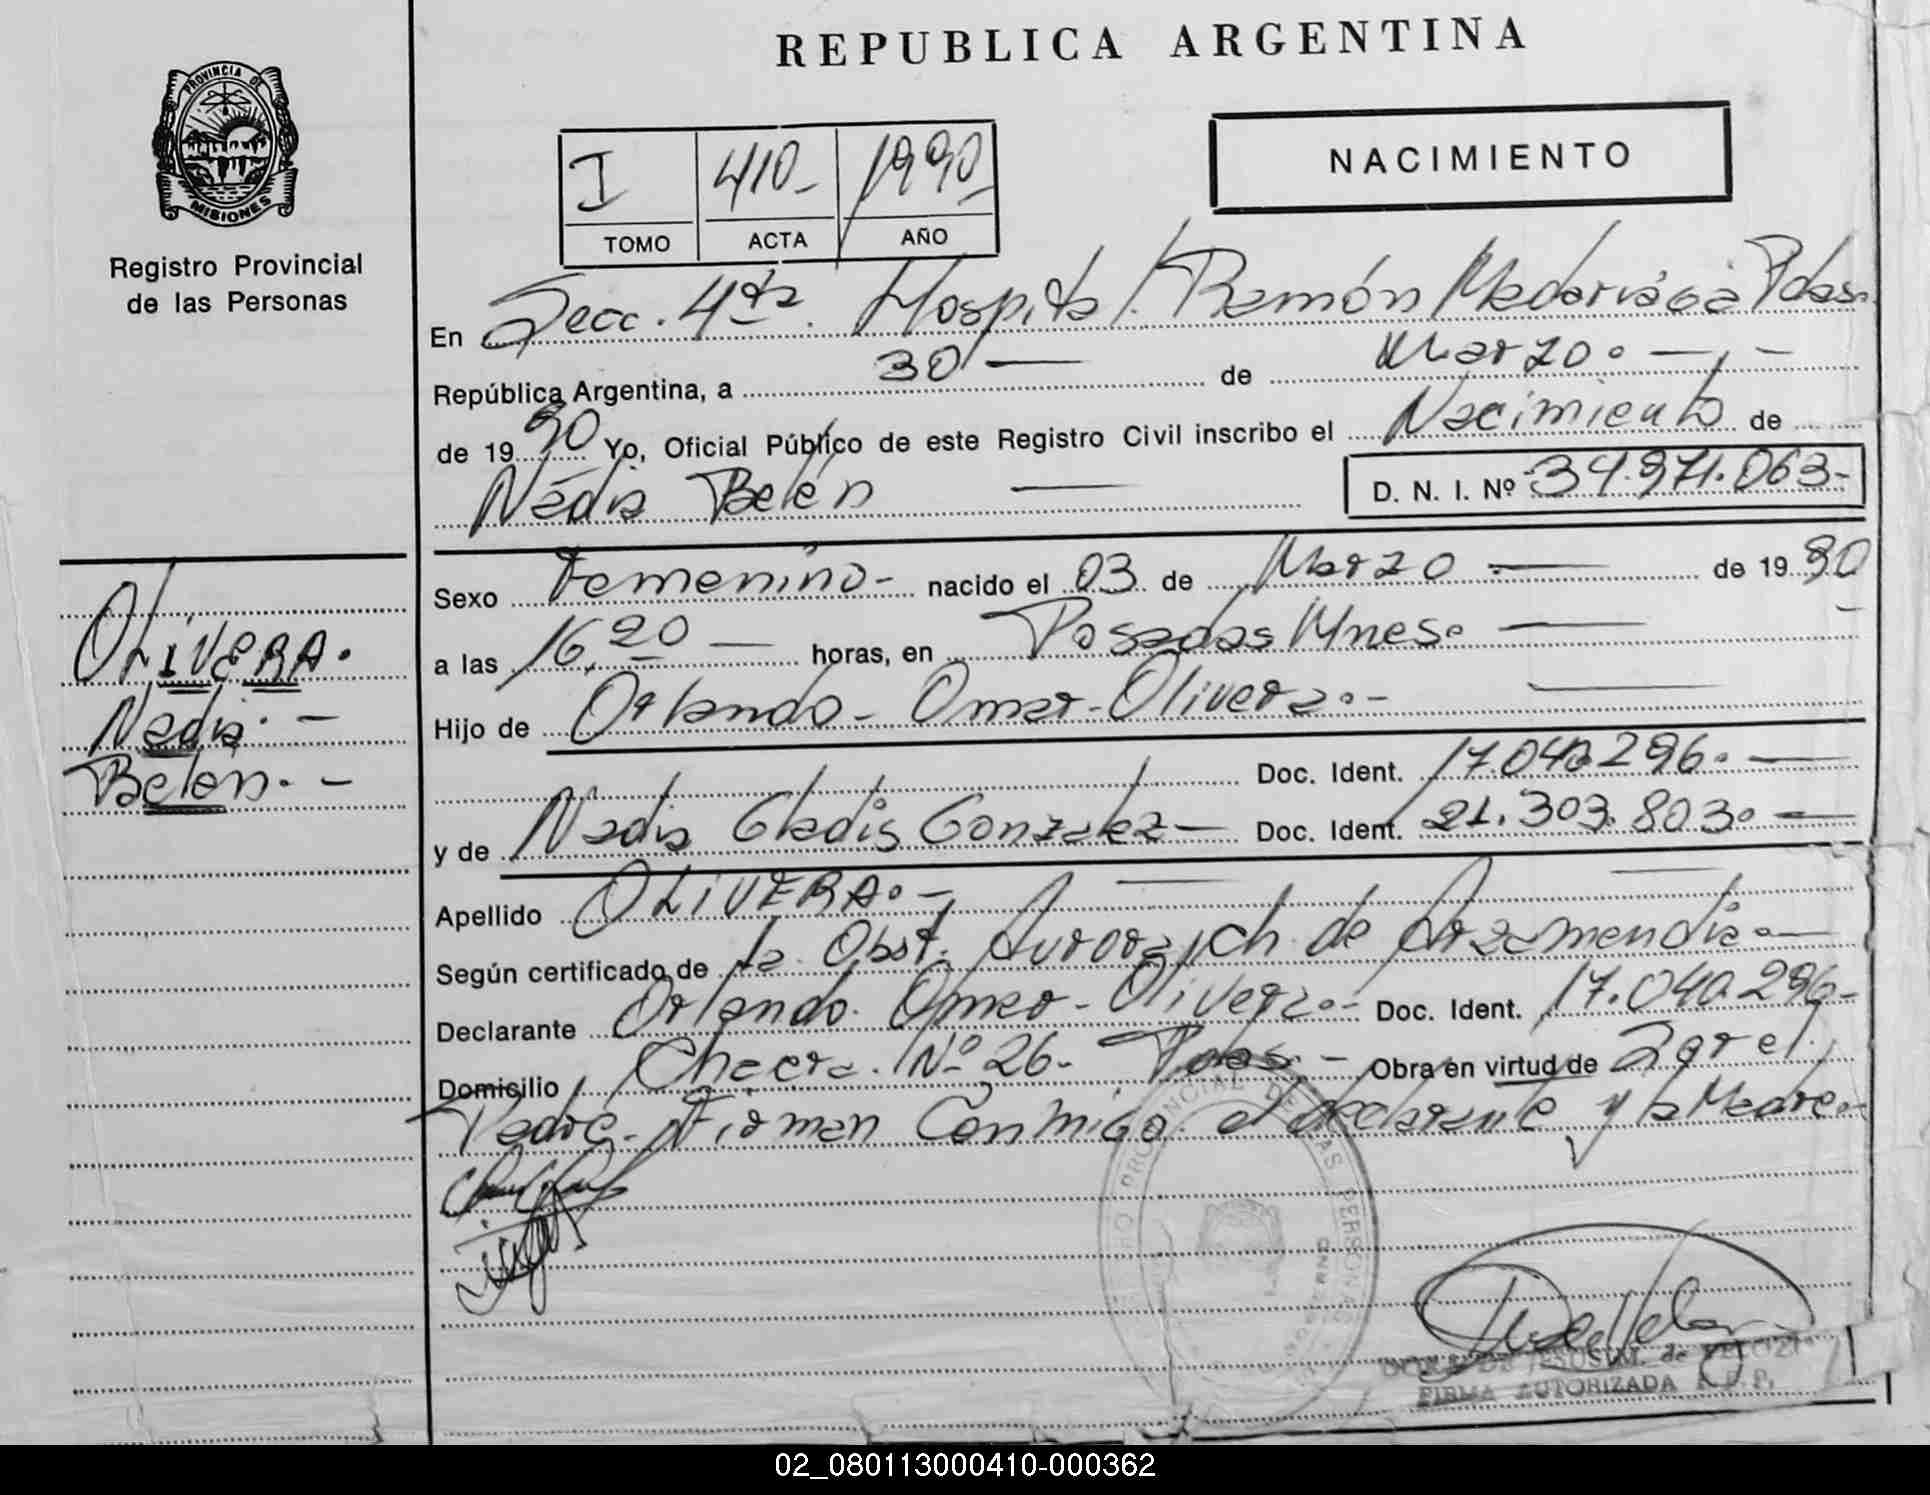 REPUBLICA ARGENTINA
PROVINCIA DE
MISIONES
Registro Provincial
de las Personas
NACIMIENTO
I 410- 1990-
TOMO ACTA AÑO
En Secc. 4ta. Hospital. Ramón Madariaga Pdas.
República Argentina, a 30 — de Marzo. — . —
de 19 90 Yo, Oficial Público de este Registro Civil inscribo el Nacimiento de
Nadia Belén — D. N. I. Nº 34.971.063-
Sexo Femenino- nacido el 03 de Marzo — de 19 90
a las 16,20 — horas, en Posadas Mnes. —
Hijo de Orlando - Omar - Olivera.- —
Doc. Ident. 17.040.296. —
y de Nadia Gladis Gonzalez — Doc. Ident. 21.303.803. —
Apellido OLIVERA. -
Según certificado de la Obst. de Arzamendia —
Declarante Orlando. Omar - Olivera.- Doc. Ident. 17.040.296-
Domicilio Chacra. Nº 26- Pdas. - Obra en virtud de
Padre. Firman Conmigo el declarante y la Madre.-
OLIVERA.
Nadia. -
Belen. -
PROVINCIAL DE LAS PERSONAS
FIRMA AUTORIZADA
02_080113000410-000362